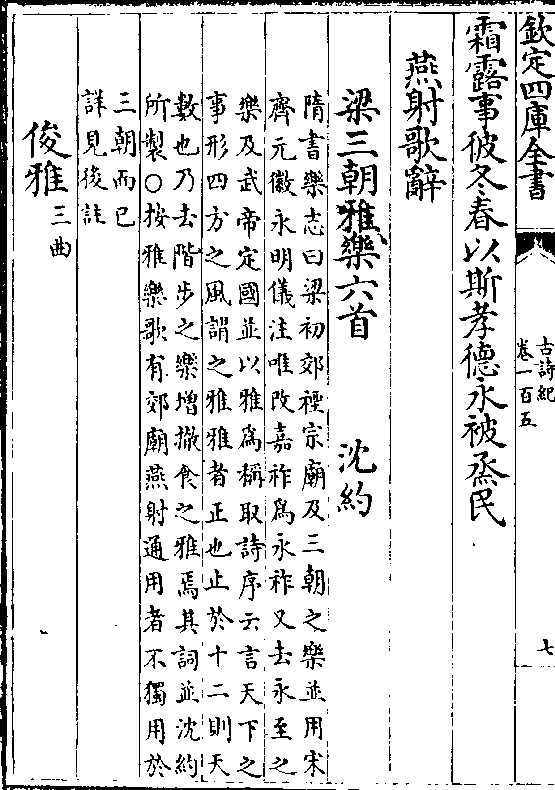 欽定四庫全書
古詩紀
卷一百五
七
霜露事彼冬春以斯孝德永被烝民
燕射歌辭
梁三朝雅樂六首　沈約
隋書樂志曰梁初郊禋宗廟及三朝之樂並用宋
齊元徽永明儀注唯改嘉祚為永祚又去永至之
樂及武帝定國並以雅為稱取詩序云言天下之
事形四方之風謂之雅雅者正也止於十二則天
數也乃去階步之樂增撤食之雅焉其詞並沈約
所製○按雅樂歌有郊廟燕射通用者不獨用於
三朝而已
詳見後註
俊雅三曲